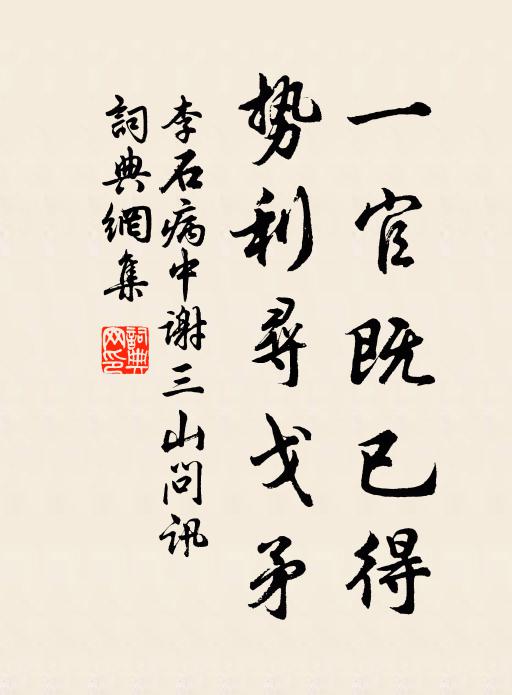 一官既已得
势利尋戈矛
李石病中谢三山問訊
詞典網集
詞典網印